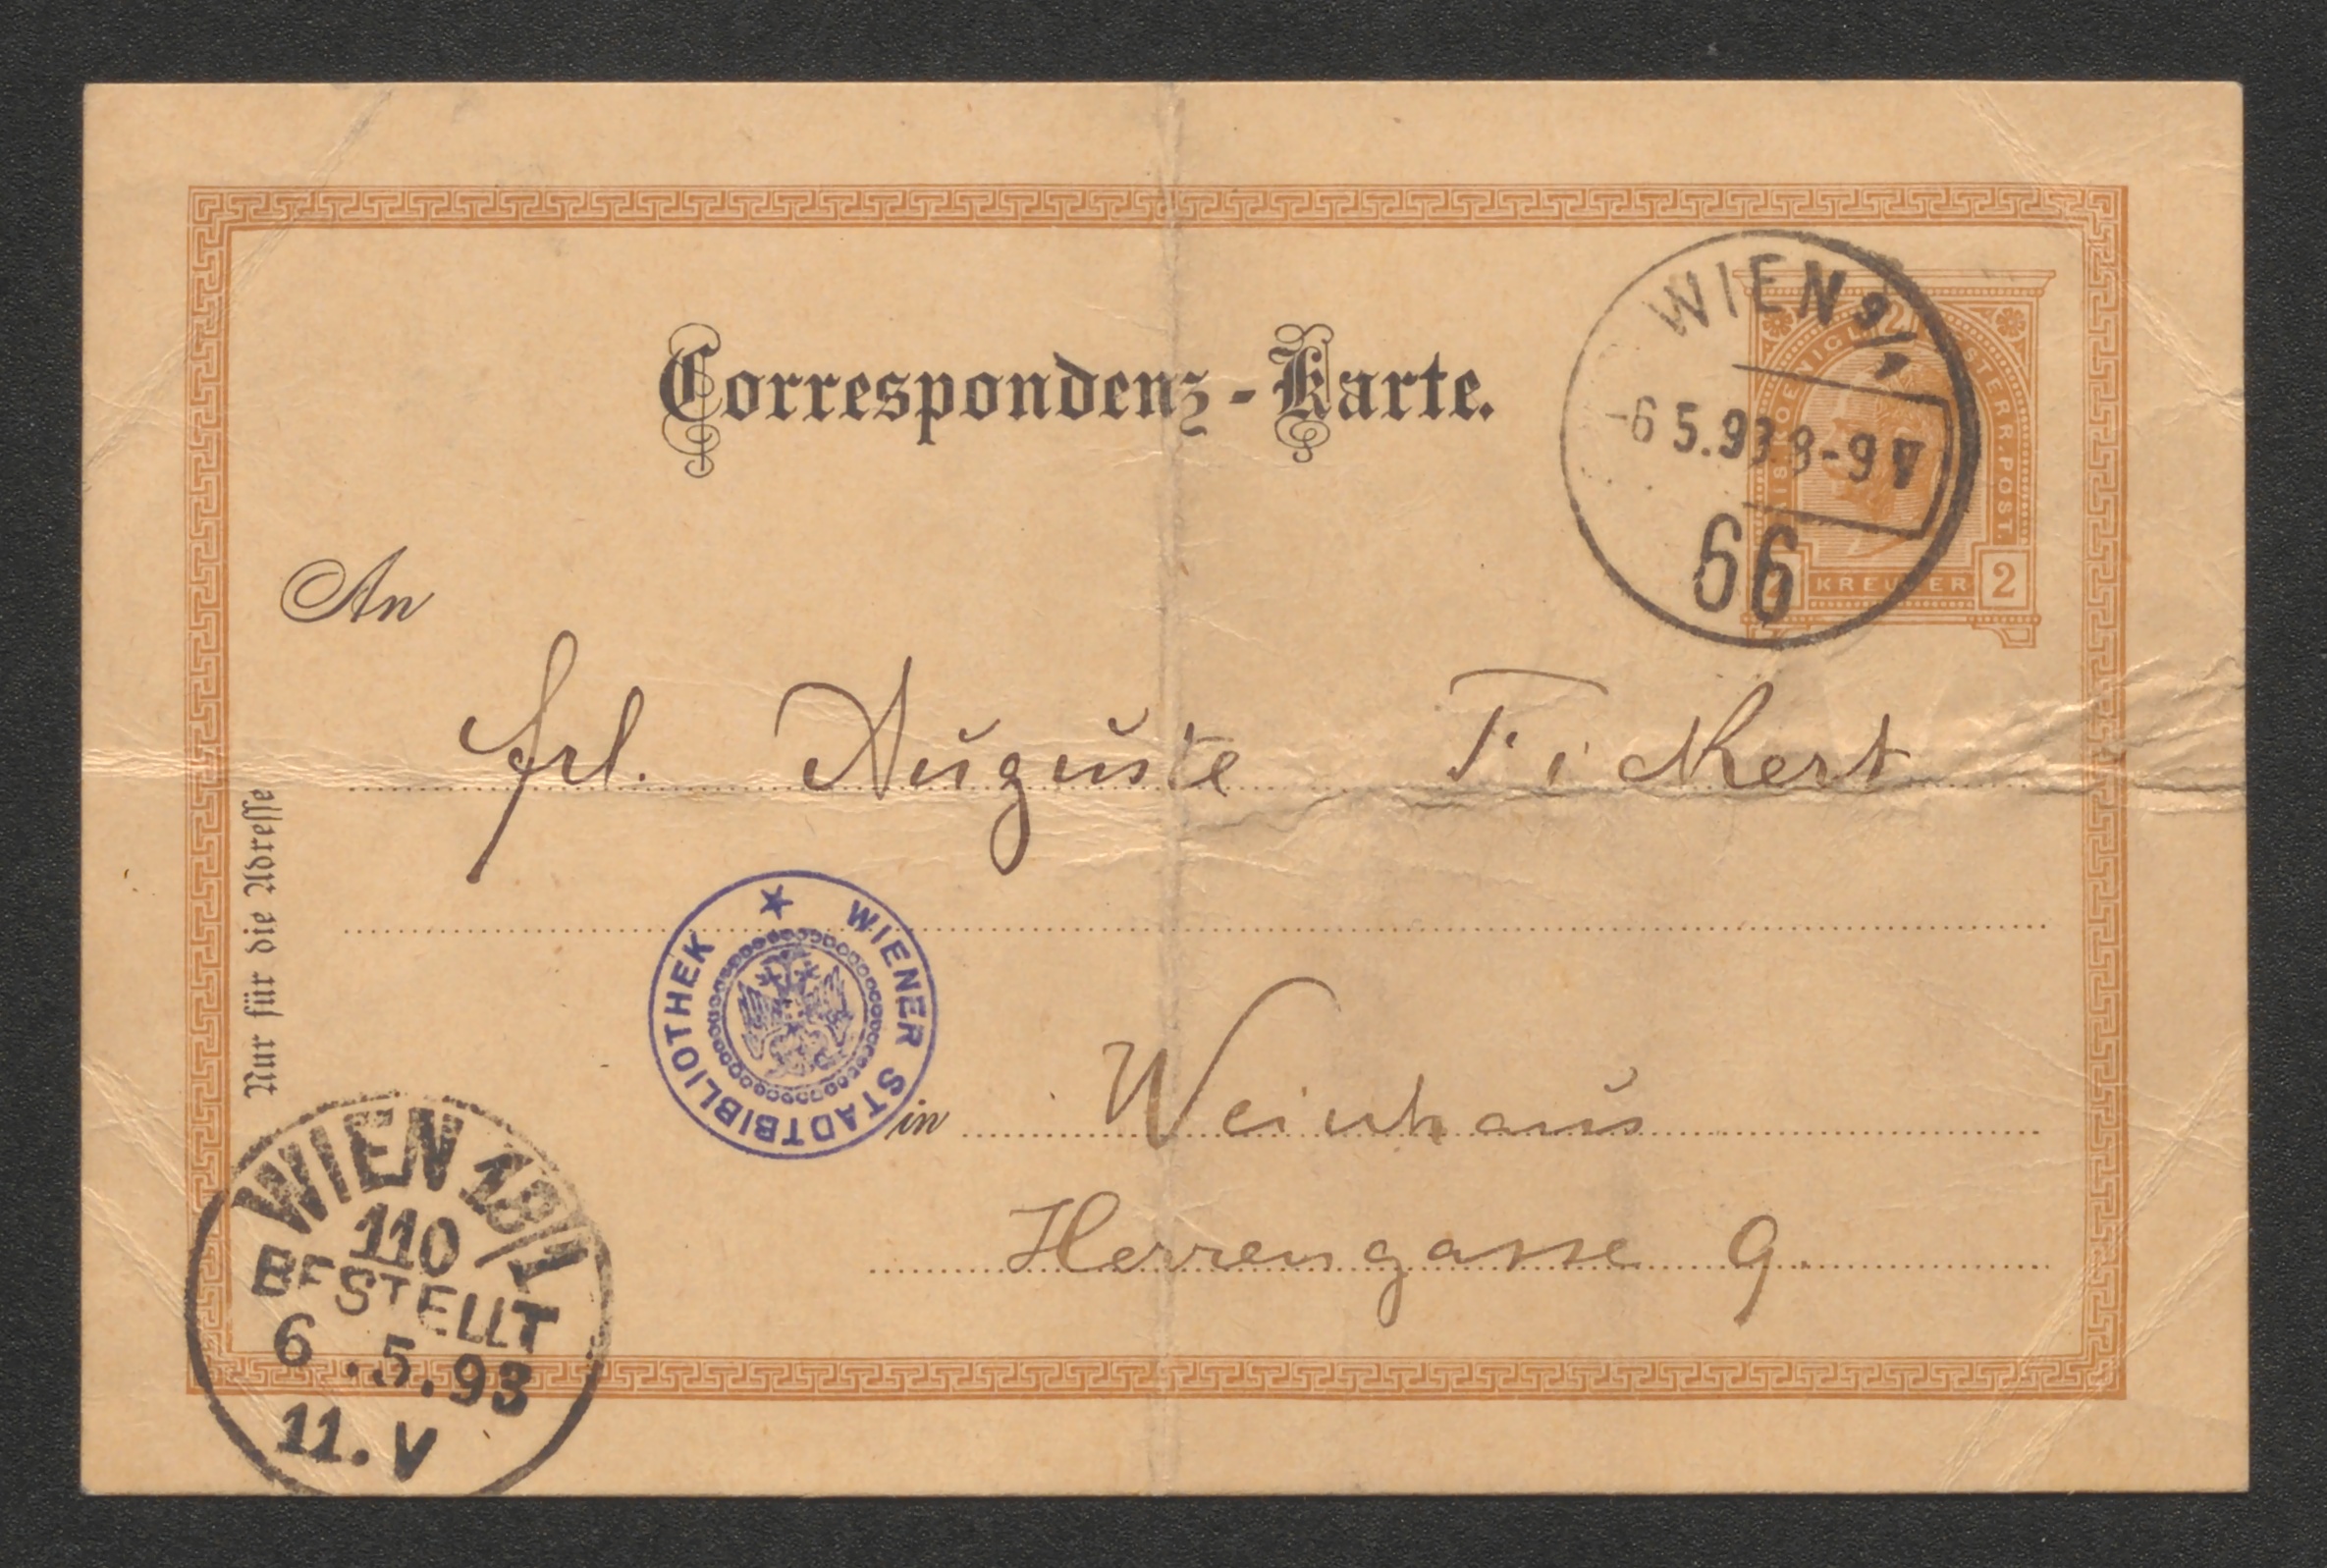 Correspondenz-Karte.
WIEN 9/1
-6 5.93 8-9 V
66
2
KREUZER 2
An
Frl. Auguste Fickert
Nur für die Adresse
WIENER STADTBIBLIOTHEK
in Weinhaus
Herrengasse 9.
WIEN 18/1
110
BESTELLT
6.5.93
11.V